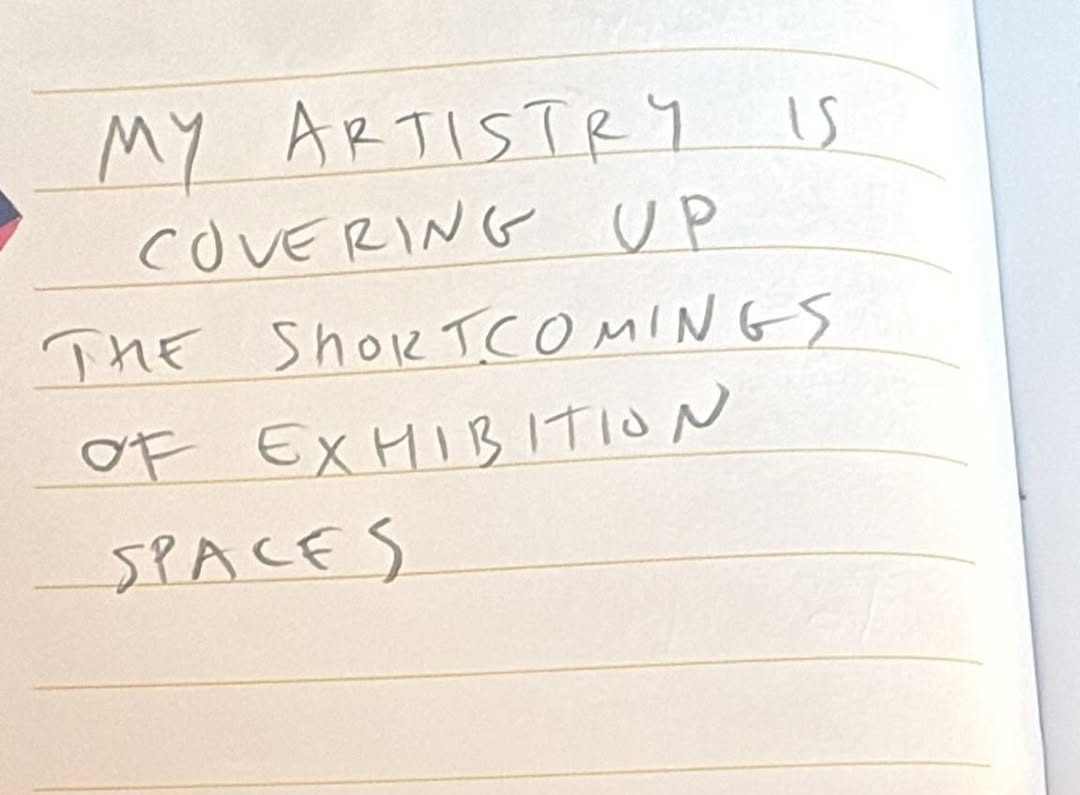 MY ARTISTRY IS
COVERING UP
THE SHORTCOMINGS
OF EXHIBITION
SPACES